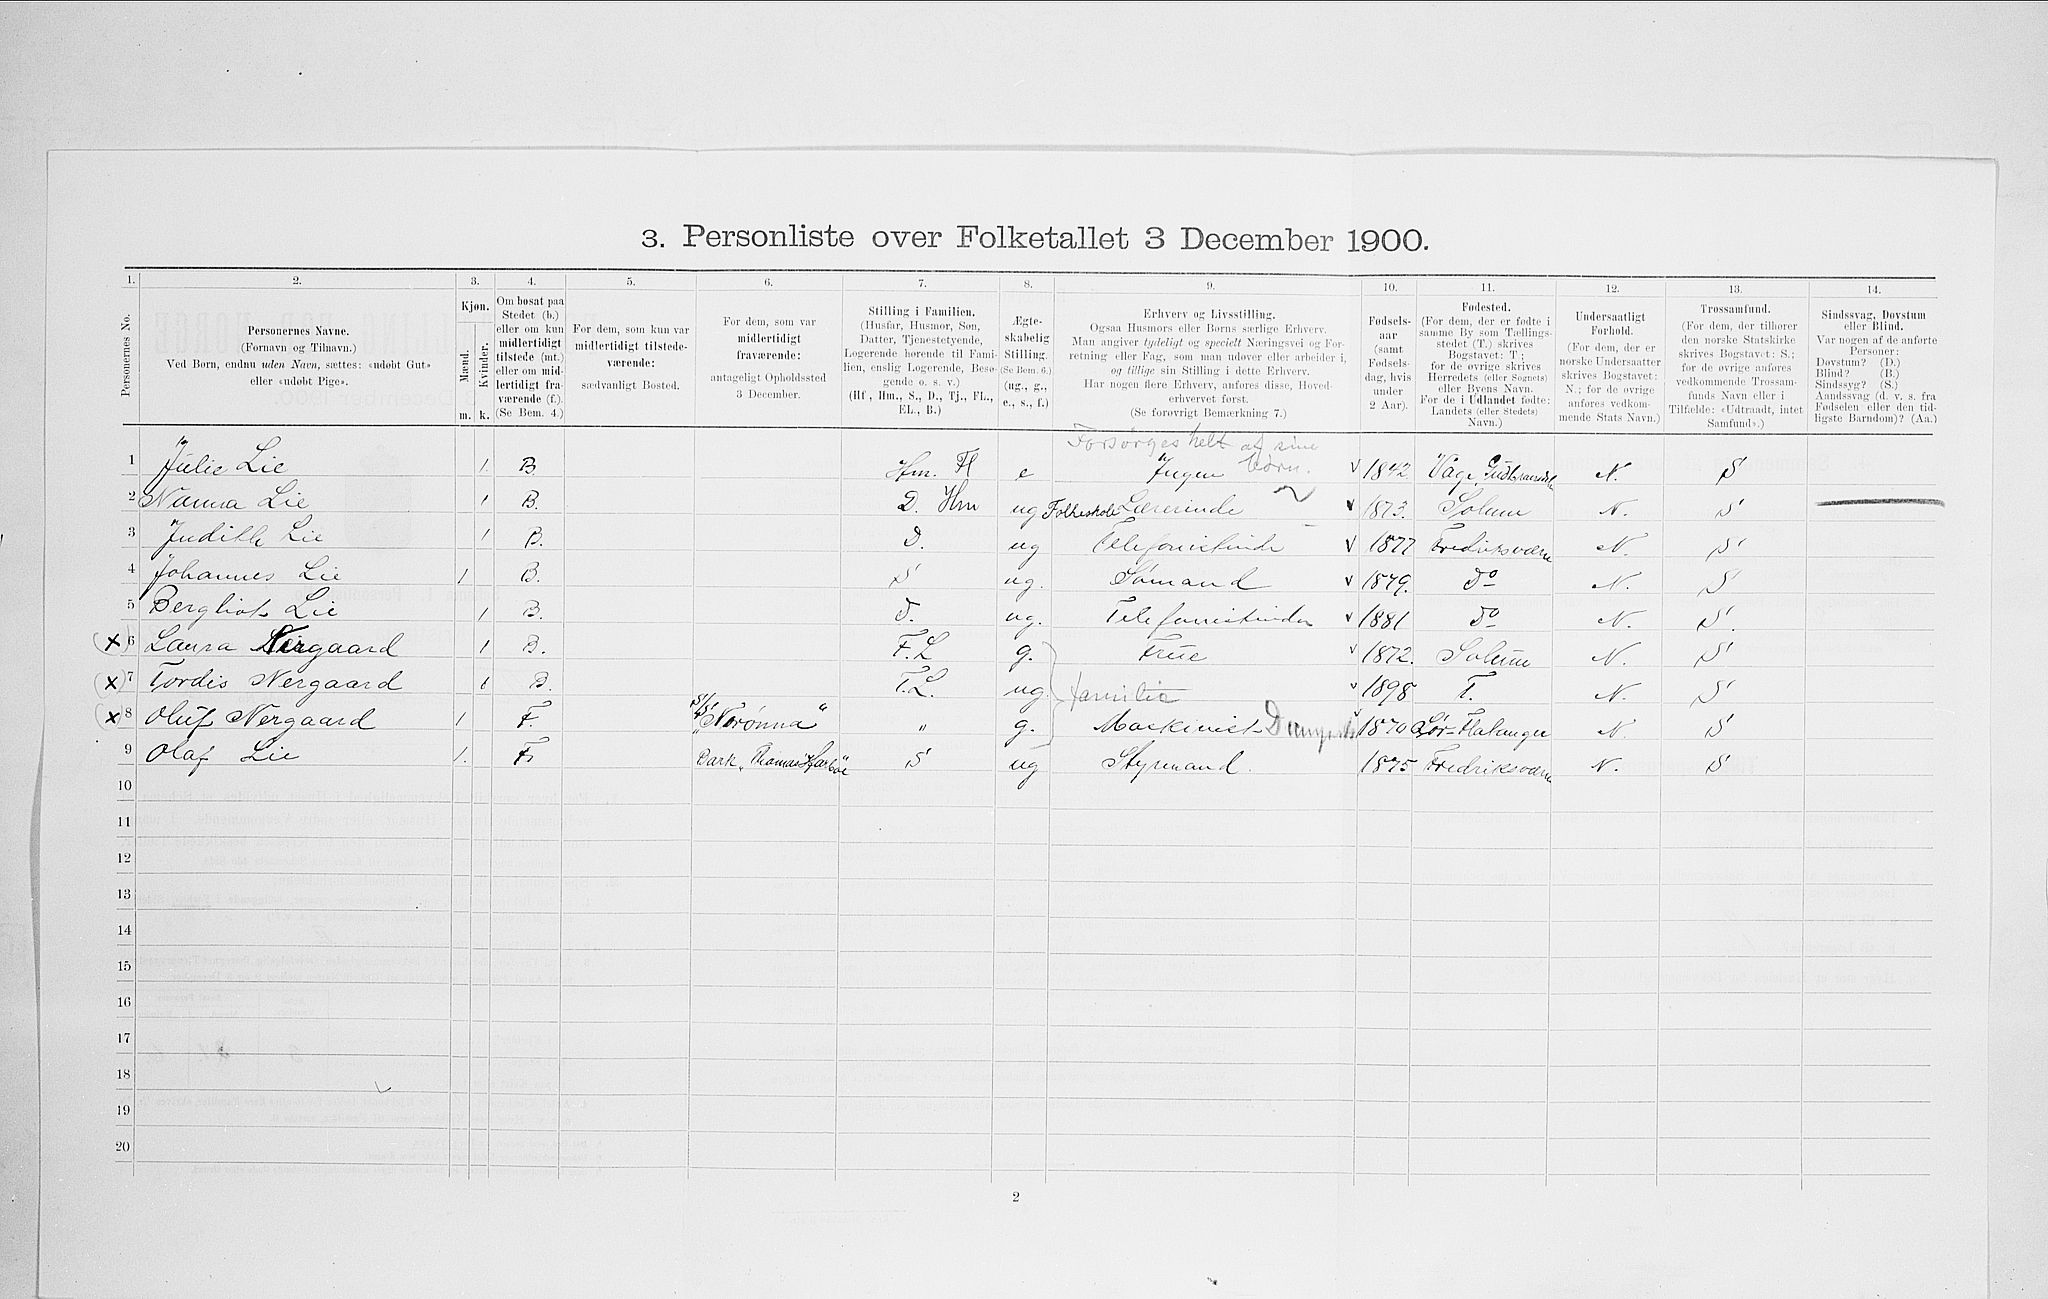 3. Personliste over Folketallet 3 December 1900.
1. 2. 3. 4. 5. 6. 7. 8. 9. 10. 11. 12. 13. 14.
Personernes No.
Personernes Navne.
(Fornavn og Tilnavn.)
Ved Børn, endnu uden Navn, sættes: «udøbt Gut»
eller «udøbt Pige».
Kjøn.
Mænd.
Kvinder.
m. k.
Om bosat paa
Stedet (b.)
eller om kun
midlertidigt
tilstede (mt.)
eller om mid-
lertidigt fra-
værende (f.).
(Se Bem. 4.)
For dem, som kun var
midlertidigt tilstede-
værende:
sædvanligt Bosted.
For dem, som var
midlertidigt
fraværende:
antageligt Opholdssted
3 December.
Stilling i Familien.
(Husfar, Husmor, Søn,
Datter, Tjenestetyende,
Logerende hørende til Fami-
lien, enslig Logerende, Besø-
gende o. s. v.)
(Hf, Hm., S., D., Tj., FL.,
EL., B.)
Ægte-
skabelig
Stilling.
(Se Bem. 6.)
(ug., g.,
e., s., f.)
Erhverv og Livsstilling.
Ogsaa Husmors eller Børns særlige Erhverv.
Man angiver tydeligt og specielt Næringsvei og For-
retning eller Fag, som man udøver eller arbeider i,
og tillige sin Stilling i dette Erhverv.
Har nogen flere Erhverv, anføres disse, Hoved-
erhvervet først.
(Se forøvrigt Bemærkning 7.)
Fødsels-
aar
(samt
Fødsels-
dag, hvis
under
2 Aar).
Fødested.
(For dem, der er fødte i
samme By som Tællings-
stedet (T.) skrives
Bogstavet: T;
for de øvrige skrives
Herredets (eller Sognets)
eller Byens Navn.
For de i Udlandet fødte:
Landets (eller Stedets)
Navn.)
Undersaatligt
Forhold.
(For dem, der er
norske Undersaatter
skrives Bogstavet:
N.; for de øvrige
anføres vedkom-
mende Stats Navn.)
Trossamfund.
(For dem, der tilhører
den norske Statskirke
skrives Bogstavet: S.;
for de øvrige anføres
vedkommende Trossam-
funds Navn eller i
Tilfælde: «Udtraadt, intet
Samfund».)
Sindssvag, Døvstum
eller Blind.
Var nogen af de anførte
Personer:
Døvstum? (D.)
Blind? (B.)
Sindssyg? (S.)
Aandssvag (d. v. s. fra
Fødselen eller den tid-
ligste Barndom)? (Aa.)
Forsørges helt af sine
1 Julie Lie 1. B Hm. Fl e Ingen børn. 1842 Vage, Gudbransdalen N. S
2 Nanna Lie 1 B. D. Hm ug Folkeskole Lærerinde 1873. Solum N. S
3 Judith Lie 1 B. D. ug Telefonistinde 1877 Fredriksværn N. S
4 Johannes Lie 1 B. S ug. Sømand 1879. Do N. S
5 Bergliot Lie 1 B. D. ug. Telefonistinde 1881 Do N. S.
(x) 6 Laura Nergaard 1 B. F.L g. Frue 1872. Solum N. S
(x) 7 Tordis Nergaard 1 B. F.L. ug. familie 1898 T. N. S
(x) 8 Oluf Nergaard 1 F. S/S „Norønna“ „ g. Maskinist 1870 Sør-Flatanger N. S
9 Olaf Lie 1. F. Bark „Thomas ug Styrmand. 1875 Fredriksværn N. S
10
11
12
13
14
15
16
17
18
19
20
2